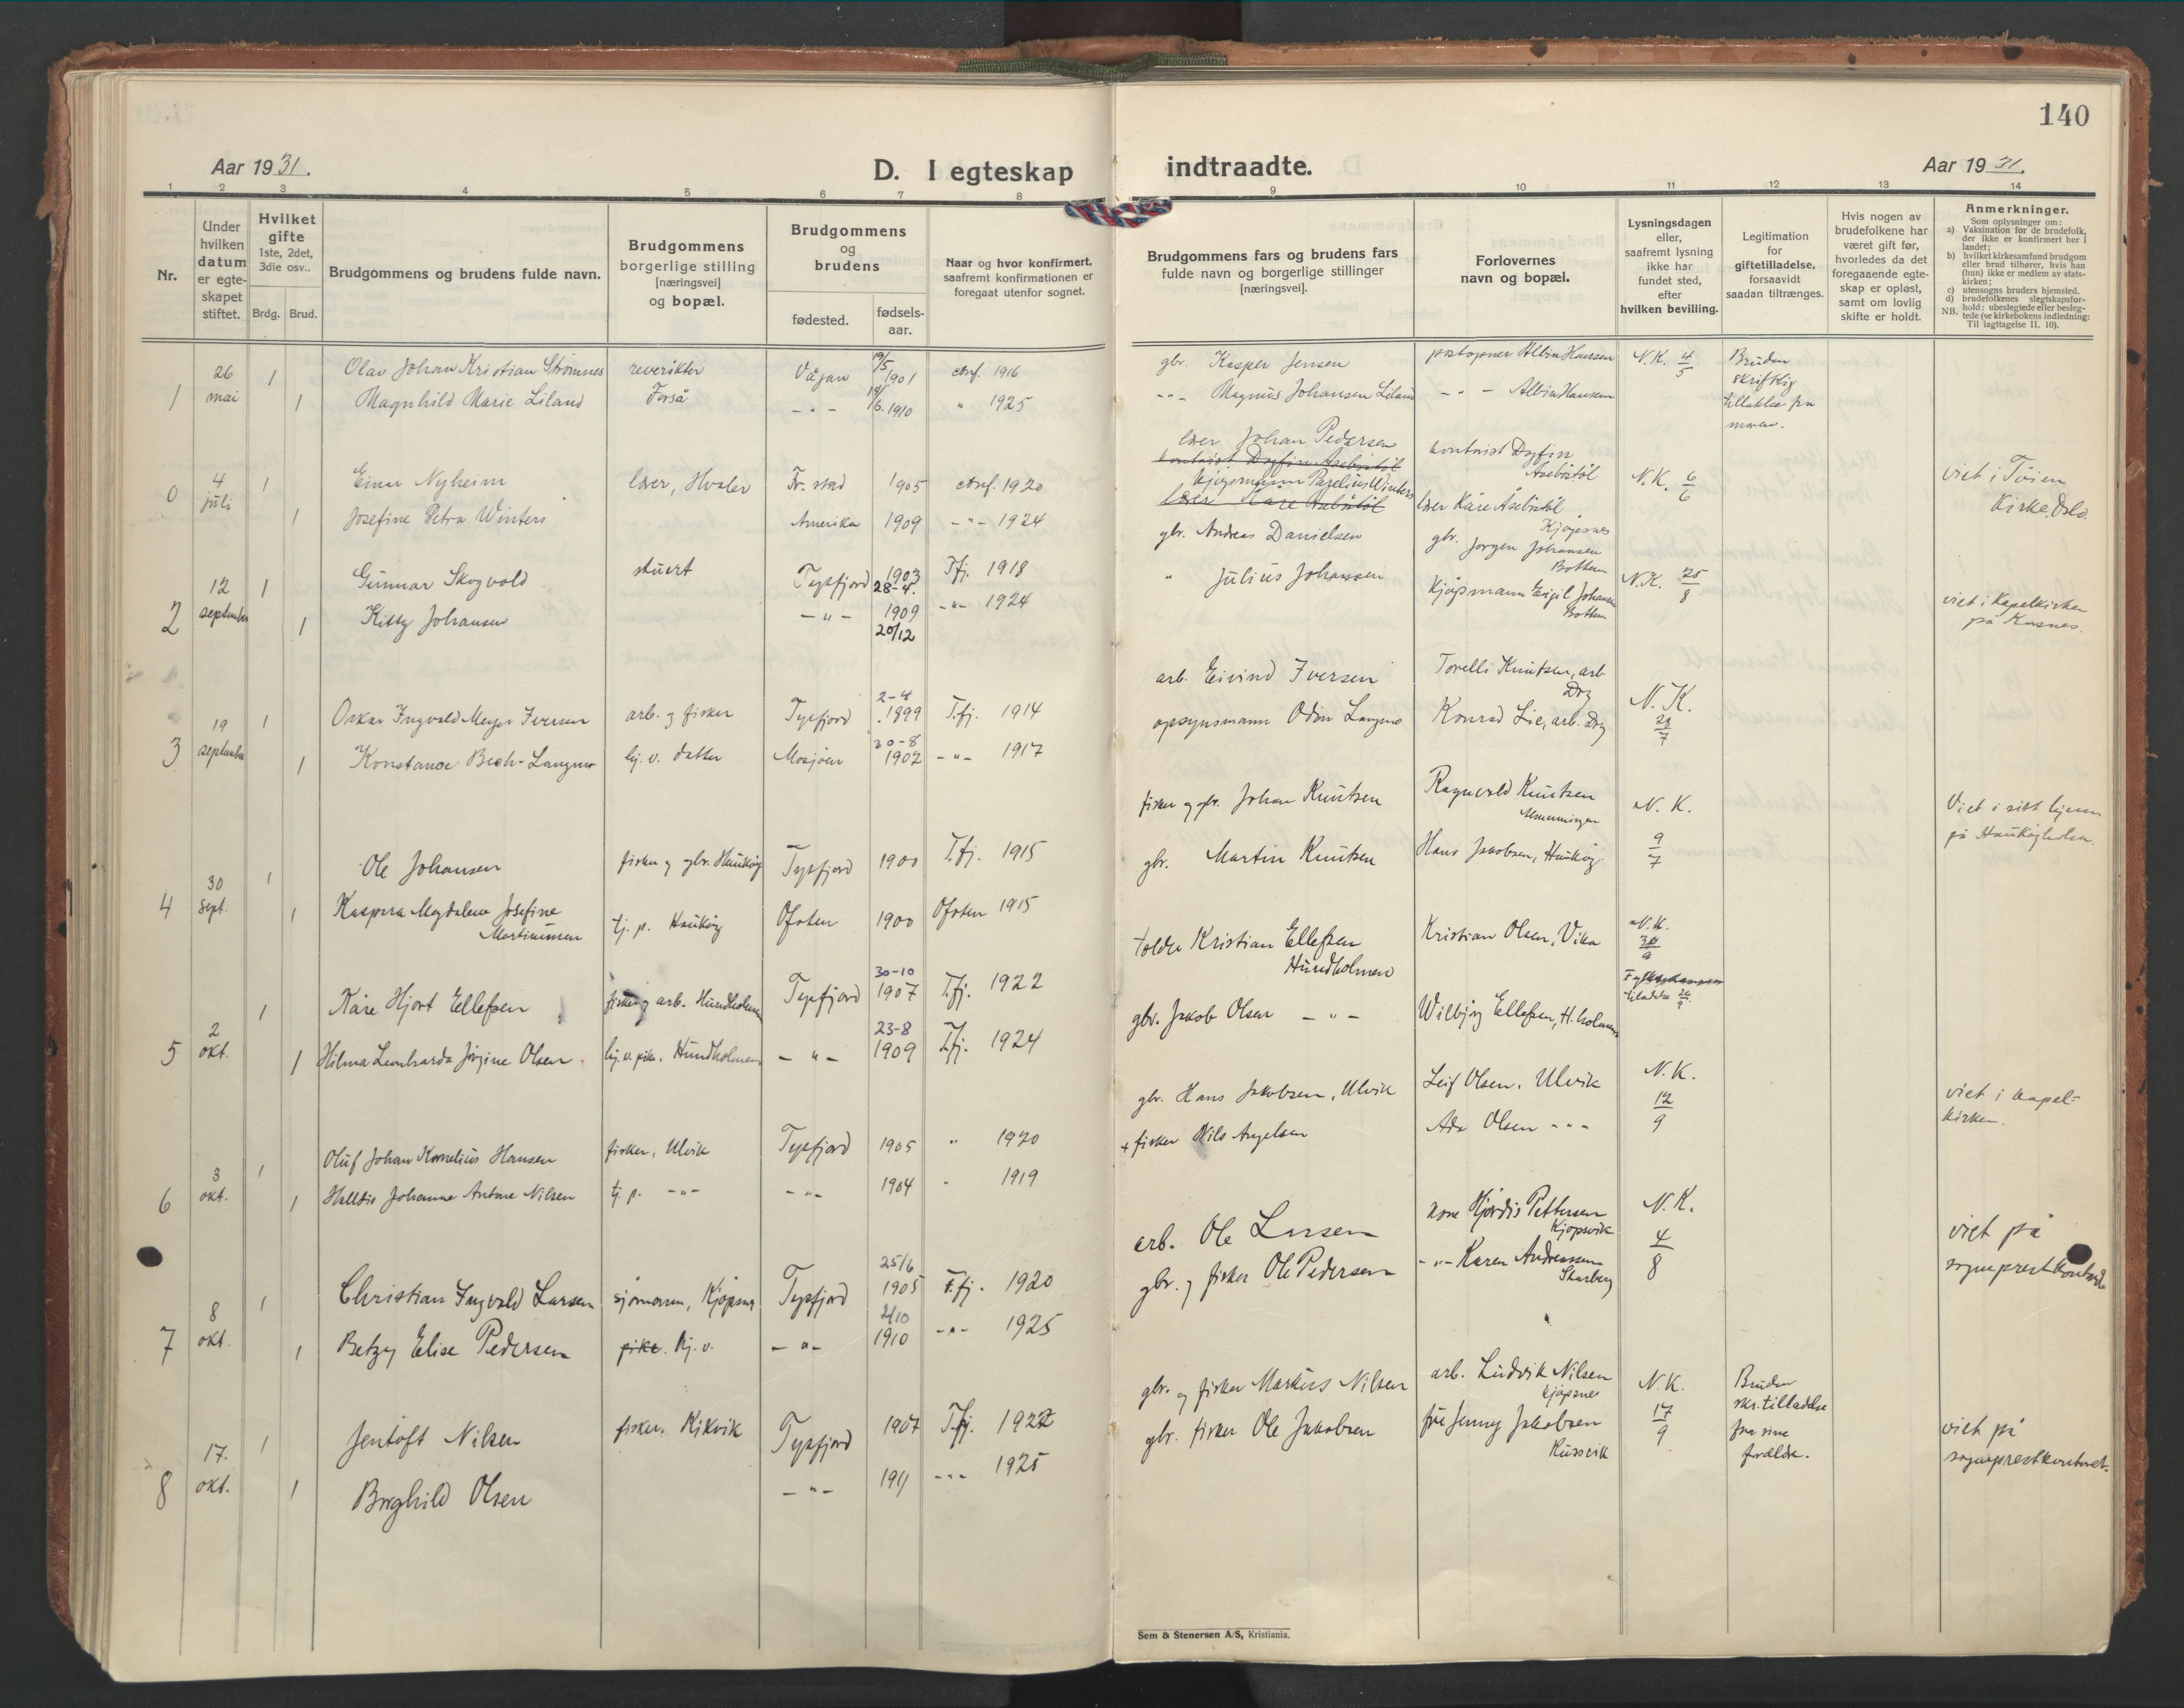 140
Aar 1931.
D. I egteskap indtraadte.
Aar 1931.
1 2 3 4 5 6 7 8 9 10 11 12 13 14
Nr.
Under hvilken datum er egte-skapet stiftet.
Hvilket gifte 1ste, 2det, 3die osv..
Brdg. Brud.
Brudgommens og brudens fulde navn.
Brudgommens borgerlige stilling [næringsvei] og bopæl.
Brudgommens og brudens
fødested. fødsels-aar.
Naar og hvor konfirmert, saafremt konfirmationen er foregaat utenfor sognet.
Brudgommens fars og brudens fars fulde navn og borgerlige stillinger [næringsvei].
Forlovernes navn og bopæl.
Lysningsdagen eller, saafremt lysning ikke har fundet sted, efter hvilken bevilling.
Legitimation for giftetilladelse, forsaavidt saadan tiltrænges.
Hvis nogen av brudefolkene har været gift før, hvorledes da det foregaaende egte-skap er opløst, samt om lovlig skifte er holdt.
Anmerkninger.
Som oplysninger om:
a) Vaksination for de brudefolk, der ikke er konfirmert her i landet;
b) hvilket kirkesamfund brudgom eller brud tilhører, hvis han (hun) ikke er medlem av stats-kirken;
c) utensogns bruders hjemsted.
d) brudefolkenes slegtskapsfor-hold: ubeslegtede eller besleg-tede (se kirkebokens indledning:
NB. Til iagttagelse II. 10).
1 26 mai 1 Olav Johan Kristian Strømnes Vågan 19/5 1901 conf. 1916 gbr. Kasper Jensen Albin Hanssen N.K. 4/5 Bruden skriftlig tillatelse fra
1 Magnhild Marie Liland Forså - " - 1910 " 1925 - " - Magnus Johansen Liland - " - Albin Hansen
0 4 juli 1 Einar Nyheim lærer, Hvaler Fr.stad 1905 conf. 1920 lærer Johan Pedersen kontorist Dagfin N.K. 6/6 viet i Tøien Kirke, Oslo.
1 Josefine Petra Winters Amerika 1909 - " - 1924 kjøpmann Winters lærer Kåre
2 12 september 1 Gunnar Skogvold stuert Tysfjord 1903 28-4. T.fj. 1918 gbr. Andreas Danielsen gbr. Jørgen Johansen Botten N.K. 25/8 viet i Kapelkirken på
1 Kitty Johansen - " - 1909 20/12 - " - 1924 " Julius Johansen kjøpmann Eigil Johansen Botten
3 19 september 1 Oskar Ingvald Meyer Iversen arb. og fisker Tysfjord 2-4 1899 T.fj. 1914 arb. Eivind Iversen Torelli Knutsen, arb. Drg N.K. 29/7
1 Konstance Bech-Langmo hj. v. datter Mosjøen 30-8 1902 - " - 1917 opsynsmann Odin Langmo Konrad Lie, arb. Drg
4 30 sept. 1 Ole Johansen fisker og gbr. Haukøy Tysfjord 1900 T.fj. 1915 fisker og gbr. Johan Knutsen Ragnvald Knutsen N.K. 9/7 Viet i sitt hjem på
1 Kaspara Magdalena Josefine Martinussen tj. p. Haukøy Ofoten 1900 Ofoten 1915 gbr. Martin Knutsen Hans Jakobsen, Haukøy
5 2 okt. 1 Kåre Hjort Ellefsen fisker og arb. Hundholmen Tysfjord 30-10 1907 T.fj. 1922 Kristian Ellefsen Hundholmen Kristian Olsen, Vika N.K.
1 Hilma Leonharda Jørgine Olsen hj. v. pike, Hundholmen - " - 23-8 1909 T.fj. 1924 gbr. Jakob Olsen - " - Wilbjørg Ellefsen, H.holmen
6 3 okt. 1 Oluf Johan Kornelius Hansen fisker, Ulvik Tysfjord 1905 " 1920 gbr. Hans Jakobsen, Ulvik Leif Olsen, Ulvik N.K. 12/9 viet i kapel-kirken.
1 Halldis Johanne Antone Nilsen tj. p. - " - - " - 1904 " 1919 + fisker Nils Angelsen Ada Olsen - " -
7 8 okt. 1 Christian Ingvald Larsen sjømann, Kjøpsnes Tysfjord 25/6 1905 T.fj. 1920 arb. Ole Larsen kone Hjørdis Pettersen Kjøpsvik N.K. 4/8 viet på sogneprestkontoret
1 Betzy Elise Pedersen pike. hj. v. - " - 2/10 1910 - " - 1925 gbr. og fisker Ole Pedersen - " - Karen Andreassen Skarberg
8 17. okt. 1 Jentoft Nilsen fisker. Kikvik Tysfjord 1907 T.fj. 1922 gbr. og fisker Markus Nilsen arb. Ludvik Nilsen Kjøpsnes N.K. 17/9 Bruden skr. tilladelse fra sine forældre. viet på sogneprestkontoret.
1 Borghild Olsen - " - 1911 - " - 1925 gbr. fisker Ole Jakobsen frk Jenny Jakobsen
Sem & Stenersen A/S, Kristiania.